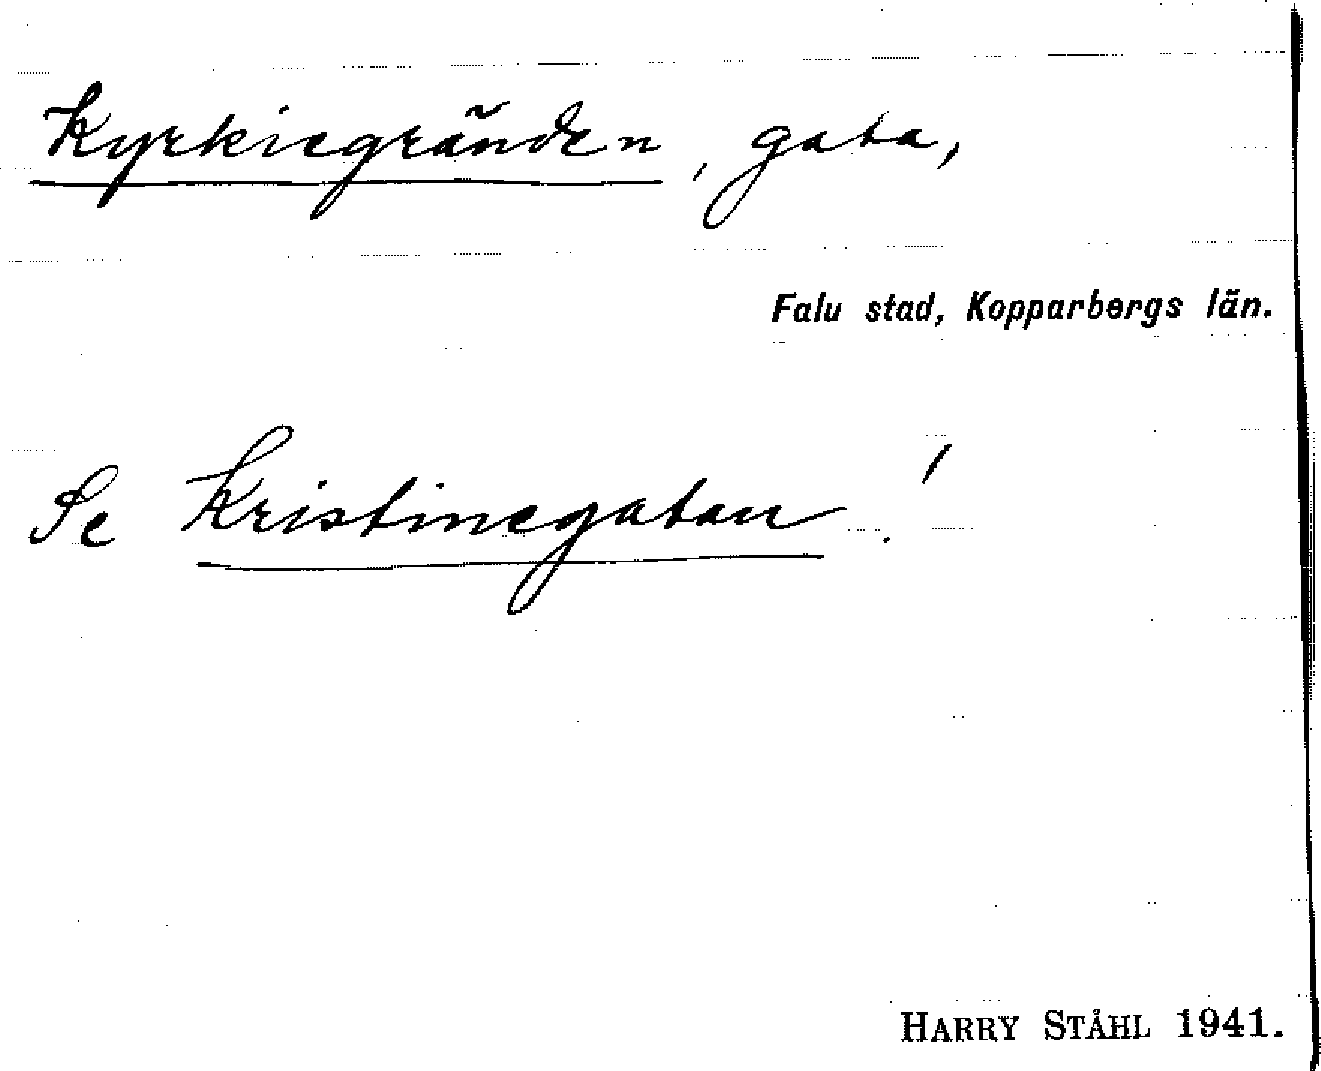 Kyrkiegränden, gata,
Falu stad, Kopparbergs län.
Se Kristinegatan!
HARRY STÅHL 1941.